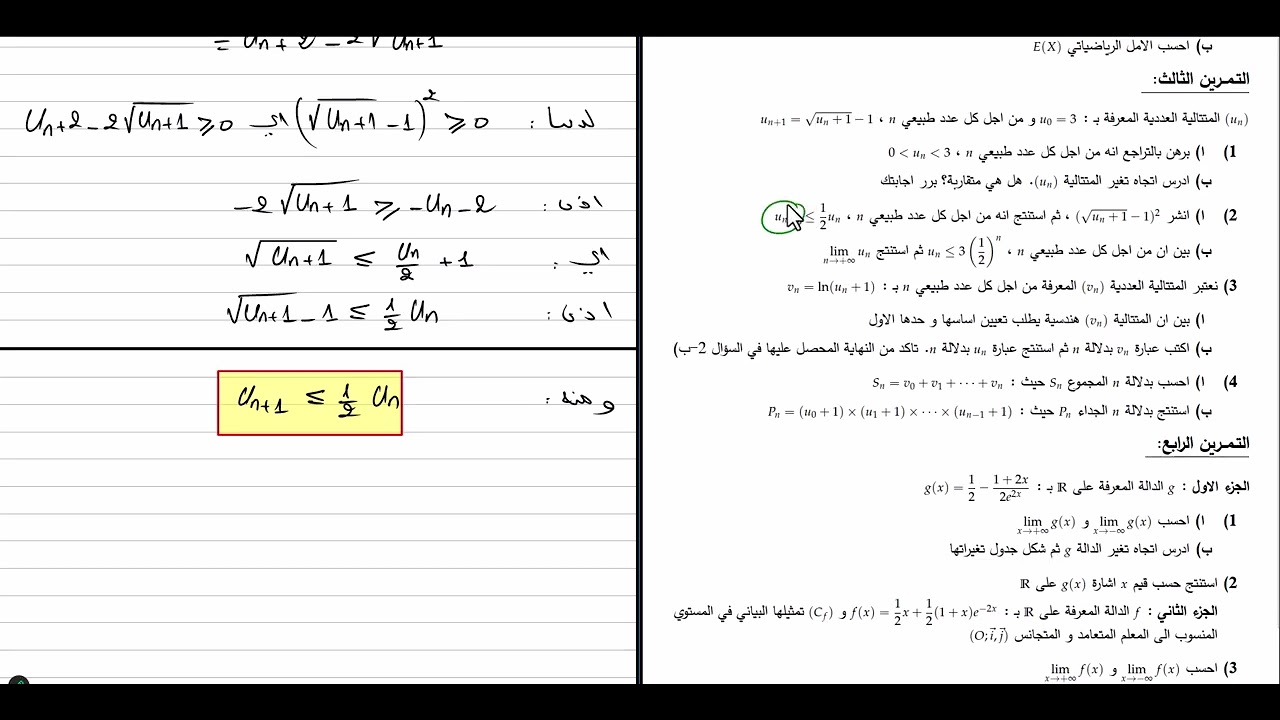 = Un + 2 - 2√Un+1
لدينا : (√Un+1 - 1)² ≥ 0 اي Un+2 - 2√Un+1 ≥ 0
اذن : -2√Un+1 ≥ -Un - 2
اي : √Un+1 ≤ Un/2 + 1
اذن : √Un+1 - 1 ≤ 1/2 Un
ومنه : Un+1 ≤ 1/2 Un
ب) احسب الامل الرياضياتي E(X)
التمرين الثالث:
(uₙ) المتتالية العددية المعرفة بـ : u₀ = 3 و من اجل كل عدد طبيعي n ، uₙ₊₁ = √(uₙ + 1) − 1
1) ا) برهن بالتراجع انه من اجل كل عدد طبيعي n ، 0 < uₙ < 3
ب) ادرس اتجاه تغير المتتالية (uₙ). هل هي متقاربة؟ برر اجابتك
2) ا) انشر (√(uₙ + 1) − 1)² ، ثم استنتج انه من اجل كل عدد طبيعي n ، uₙ ≤ 1/2 uₙ
ب) بين ان من اجل كل عدد طبيعي n ، uₙ ≤ 3(1/2)ⁿ ثم استنتج lim n→+∞ uₙ
3) نعتبر المتتالية العددية (vₙ) المعرفة من اجل كل عدد طبيعي n بـ : vₙ = ln(uₙ + 1)
ا) بين ان المتتالية (vₙ) هندسية يطلب تعيين اساسها و حدها الاول
ب) اكتب عبارة vₙ بدلالة n ثم استنتج عبارة uₙ بدلالة n. تاكد من النهاية المحصل عليها في السؤال 2–ب)
4) ا) احسب بدلالة n المجموع Sₙ حيث : Sₙ = v₀ + v₁ + ⋯ + vₙ
ب) استنتج بدلالة n الجداء Pₙ حيث : Pₙ = (u₀ + 1) × (u₁ + 1) × ⋯ × (uₙ₋₁ + 1)
التمرين الرابع:
الجزء الاول : g الدالة المعرفة على ℝ بـ : g(x) = 1/2 − (1 + 2x)/(2e²ˣ)
1) ا) احسب lim x→−∞ g(x) و lim x→+∞ g(x)
ب) ادرس اتجاه تغير الدالة g ثم شكل جدول تغيراتها
2) استنتج حسب قيم x اشارة g(x) على ℝ
الجزء الثاني : f الدالة المعرفة على ℝ بـ: f(x) = 1/2 x + 1/2 (1 + x)e⁻²ˣ و (C_f) تمثيلها البياني في المستوي
المنسوب الى المعلم المتعامد و المتجانس (O; i⃗, j⃗)
3) احسب lim x→−∞ f(x) و lim x→+∞ f(x)